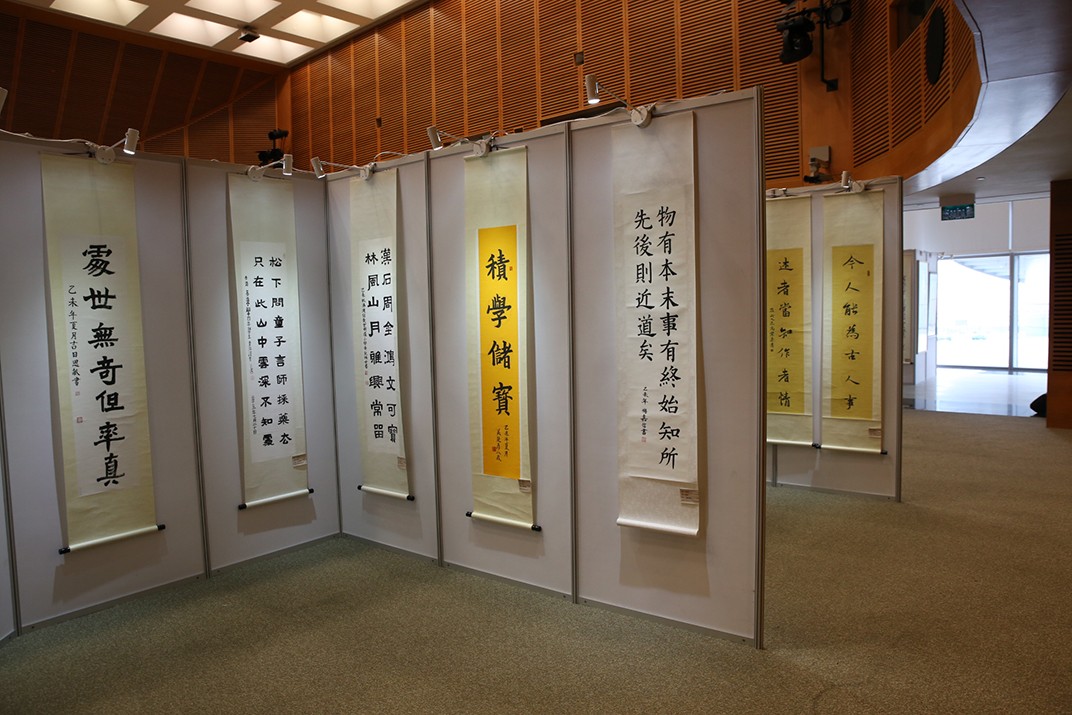 處世無奇但率真
乙未年夏月吉日
松下問童子言師採藥去
只在此山中雲深不知處
漢石周金鴻文可寶
林風山月雅興常留
積學儲寶
乙未年夏月
物有本末事有終始知所
先後則近道矣
乙未年
今人能為古人事
者當知作者情